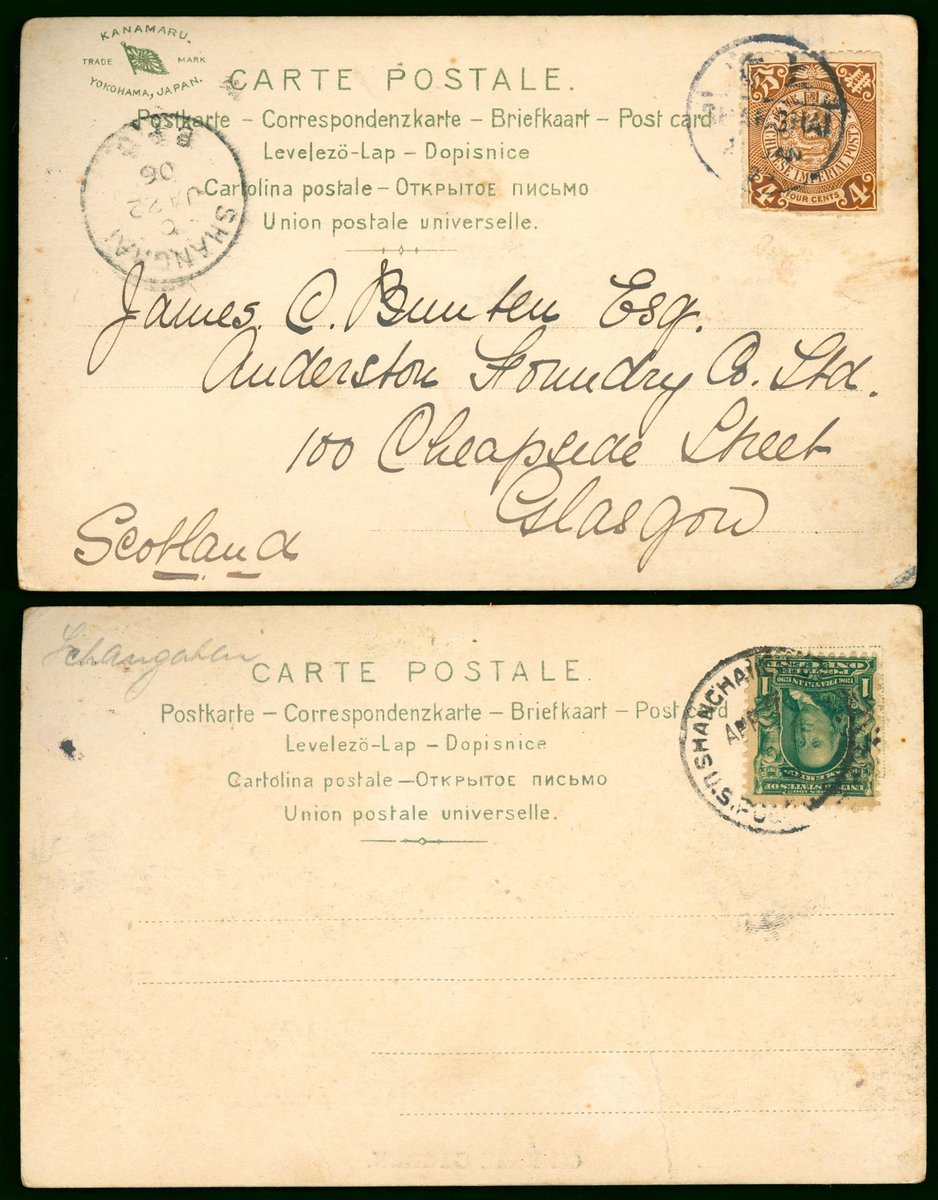 KANAMARU.
TRADE MARK
YOKOHAMA, JAPAN.
CARTE POSTALE.
Postkarte – Correspondenzkarte – Briefkaart – Post card
Levelezö-Lap – Dopisnice
Cartolina postale – Открытое письмо
Union postale universelle.
CHINESE IMPERIAL POST
4 4
FOUR CENTS
SHANGHAI
JA 22
06
James. C. Bunten Esq.
Anderston Foundry Co. Ltd.
100 Cheapside Street
Glasgow
Scotland
CARTE POSTALE.
Postkarte – Correspondenzkarte – Briefkaart – Post card
Levelezö-Lap – Dopisnice
Cartolina postale – Открытое письмо
Union postale universelle.
SHANGHAI
U.S. POS
1 1
ONE CENT